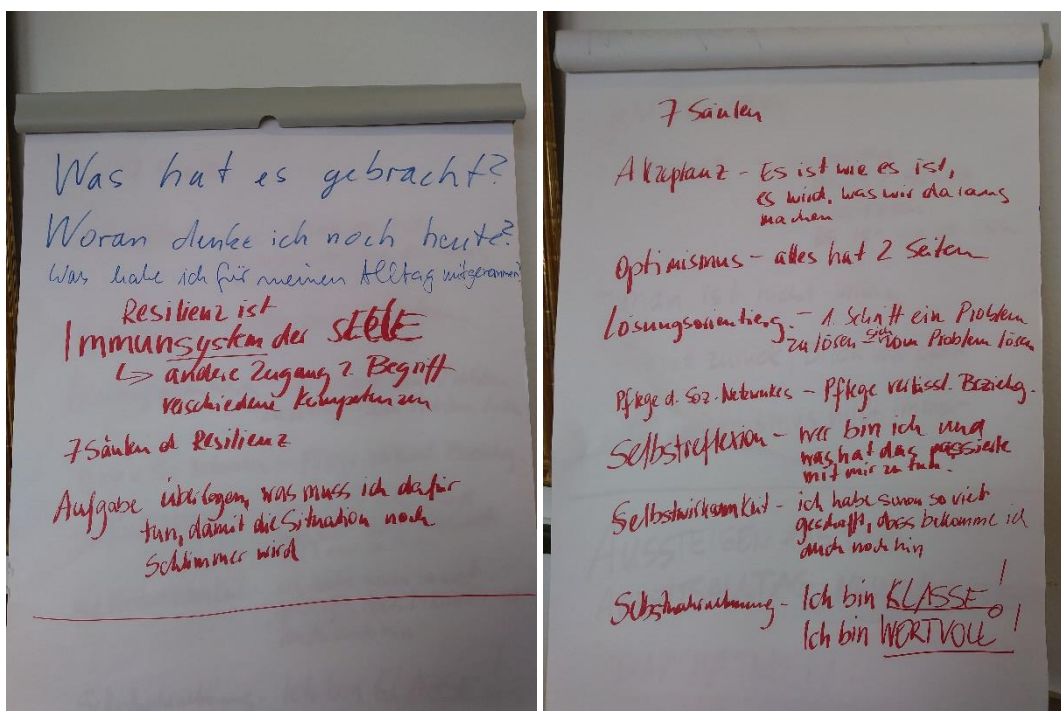 Was hat es gebracht?
Woran denke ich noch heute?
Was habe ich für meinen Alltag mitgenommen?
Resilienz ist
Immunsystem der SEELE
↳ andere Zugang z. Begriff
verschiedene Kompetenzen
7 Säulen d. Resilienz
Aufgabe überlegen, was muss ich dafür
tun, damit die Situation noch
schlimmer wird
7 Säulen
Akzeptanz - Es ist wie es ist,
es wird, was wir daraus
machen
Optimismus - alles hat 2 Seiten
Lösungsorientierg. - 1. Schritt ein Problem
zu lösen sich vom Problem lösen
Pflege d. Soz. Netzwerkes - Pflege verlässl. Beziehg.
Selbstreflexion - wer bin ich und
was hat das passierte
mit mir zu tun.
Selbstwirksamkeit - ich habe schon so viel
geschafft, dass bekomme ich
auch noch hin
Selbstwahrnehmung - Ich bin KLASSE!
Ich bin WERTVOLL!